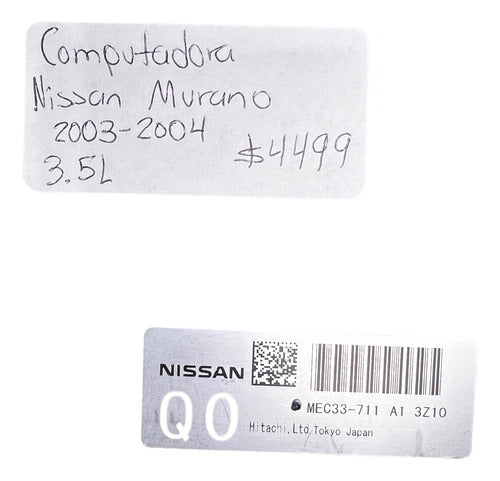 Computadora
Nissan Murano
2003-2004
$4499
3.5L
NISSAN
MEC33-711 A1 3Z10
QO
Hitachi,Ltd,Tokyo Japan